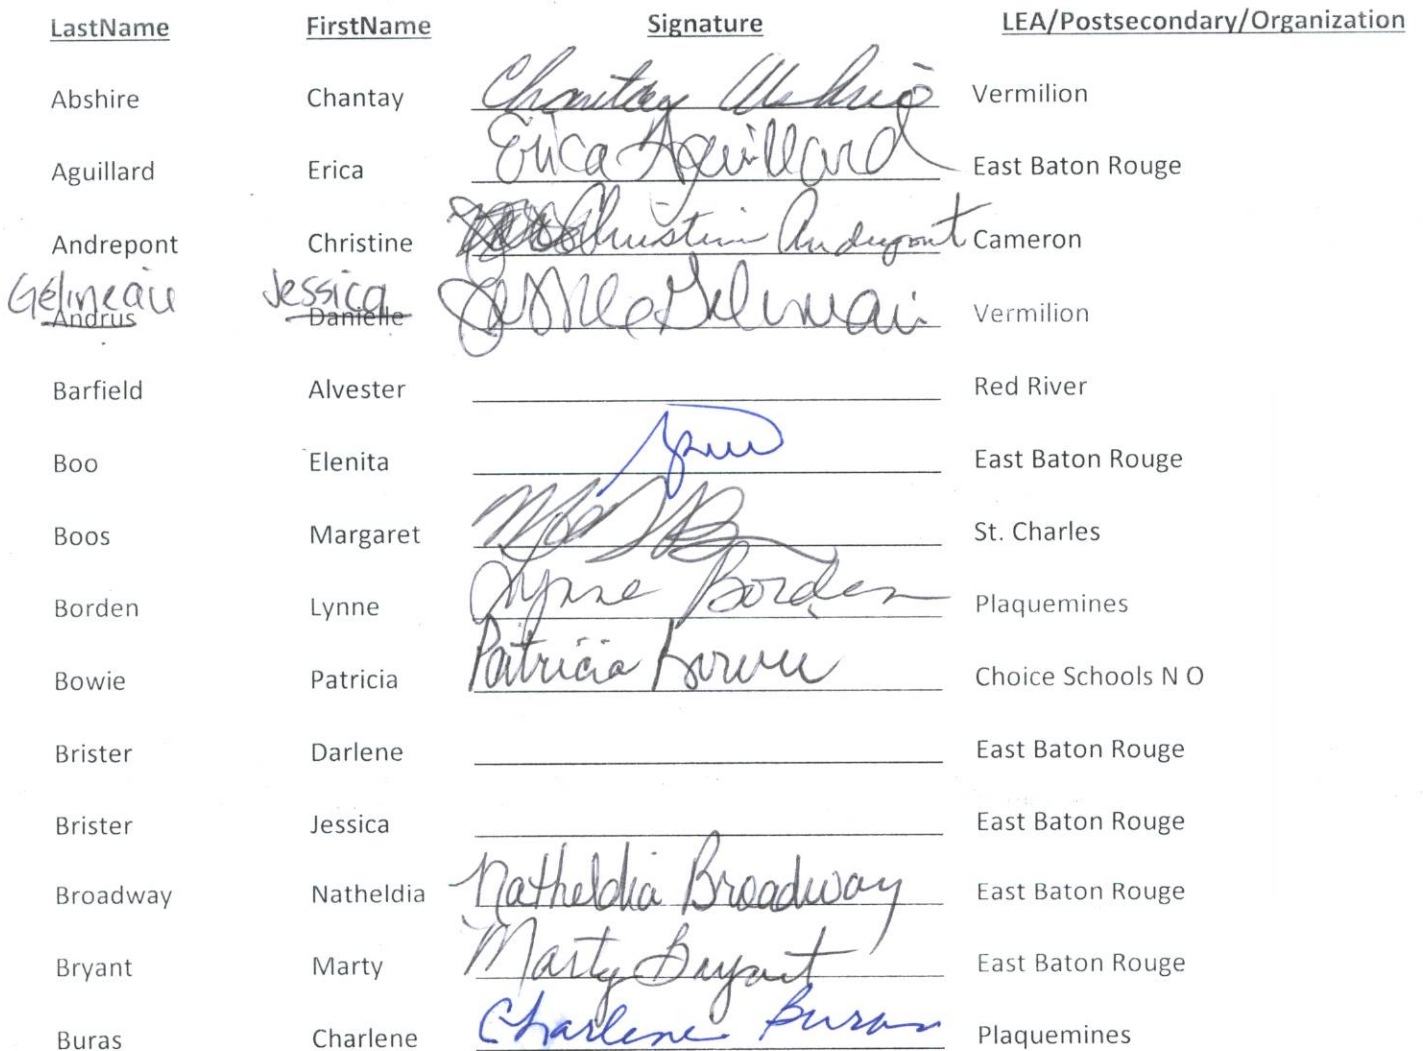 LastName FirstName Signature LEA/Postsecondary/Organization
Abshire Chantay Chantay Abshire Vermilion
Aguillard Erica Erica Aguillard East Baton Rouge
Andrepont Christine Christine Andrepont Cameron
Gélineau Jessica Jessica Gelineau
Andrus Danielle Vermilion
Barfield Alvester Red River
Boo Elenita East Baton Rouge
Boos Margaret St. Charles
Borden Lynne Lynne Borden Plaquemines
Bowie Patricia Patricia Bowie Choice Schools N O
Brister Darlene East Baton Rouge
Brister Jessica East Baton Rouge
Broadway Natheldia Natheldia Broadway East Baton Rouge
Bryant Marty Marty Bryant East Baton Rouge
Buras Charlene Charlene Buras Plaquemines